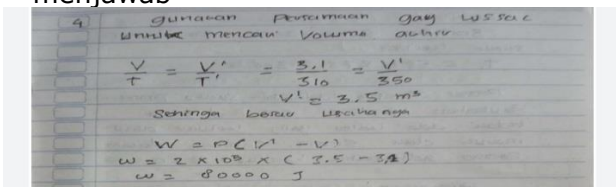 menjawab
4 gunakan Persamaan gay Lussac
Untuk mencari Volume akhir
V/T = V'/T' = 3.1/310 = V'/350
V' = 3.5 m³
Sehinga besar usahanya
W = P(V' - V)
W = 2 x 10⁵ x (3.5 - 3,1)
W = 80000 J